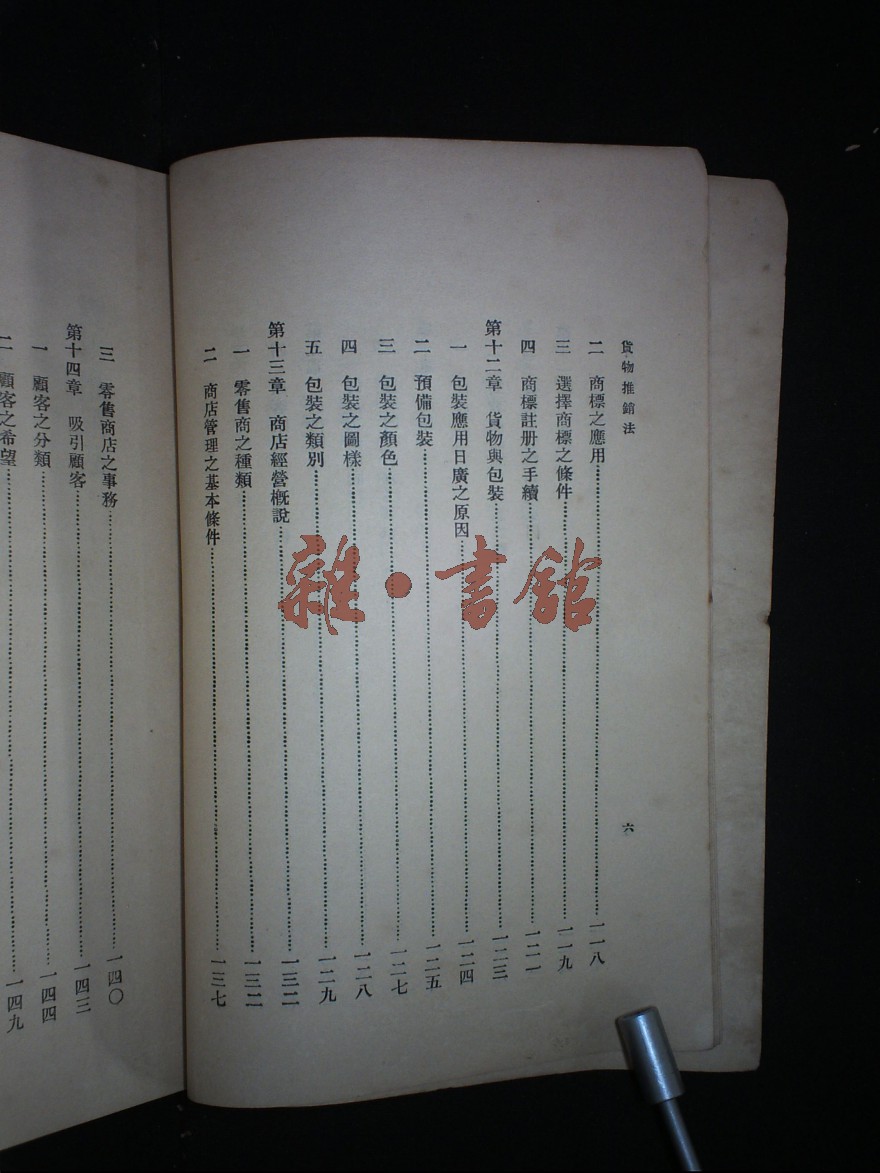 貨物推銷法
六
二 商標之應用 一一八
三 選擇商標之條件 一一九
四 商標註册之手續 一二一
第十二章 貨物與包裝 一二三
一 包裝應用日廣之原因 一二四
二 預備包裝 一二五
三 包裝之顏色 一二七
四 包裝之圖樣 一二八
五 包裝之類別 一二九
第十三章 商店經營概說 一三二
一 零售商之種類 一三二
二 商店管理之基本條件 一三七
三 零售商店之事務 一四〇
第十四章 吸引顧客 一四三
一 顧客之分類 一四四
二 顧客之希望 一四九
雜·書館